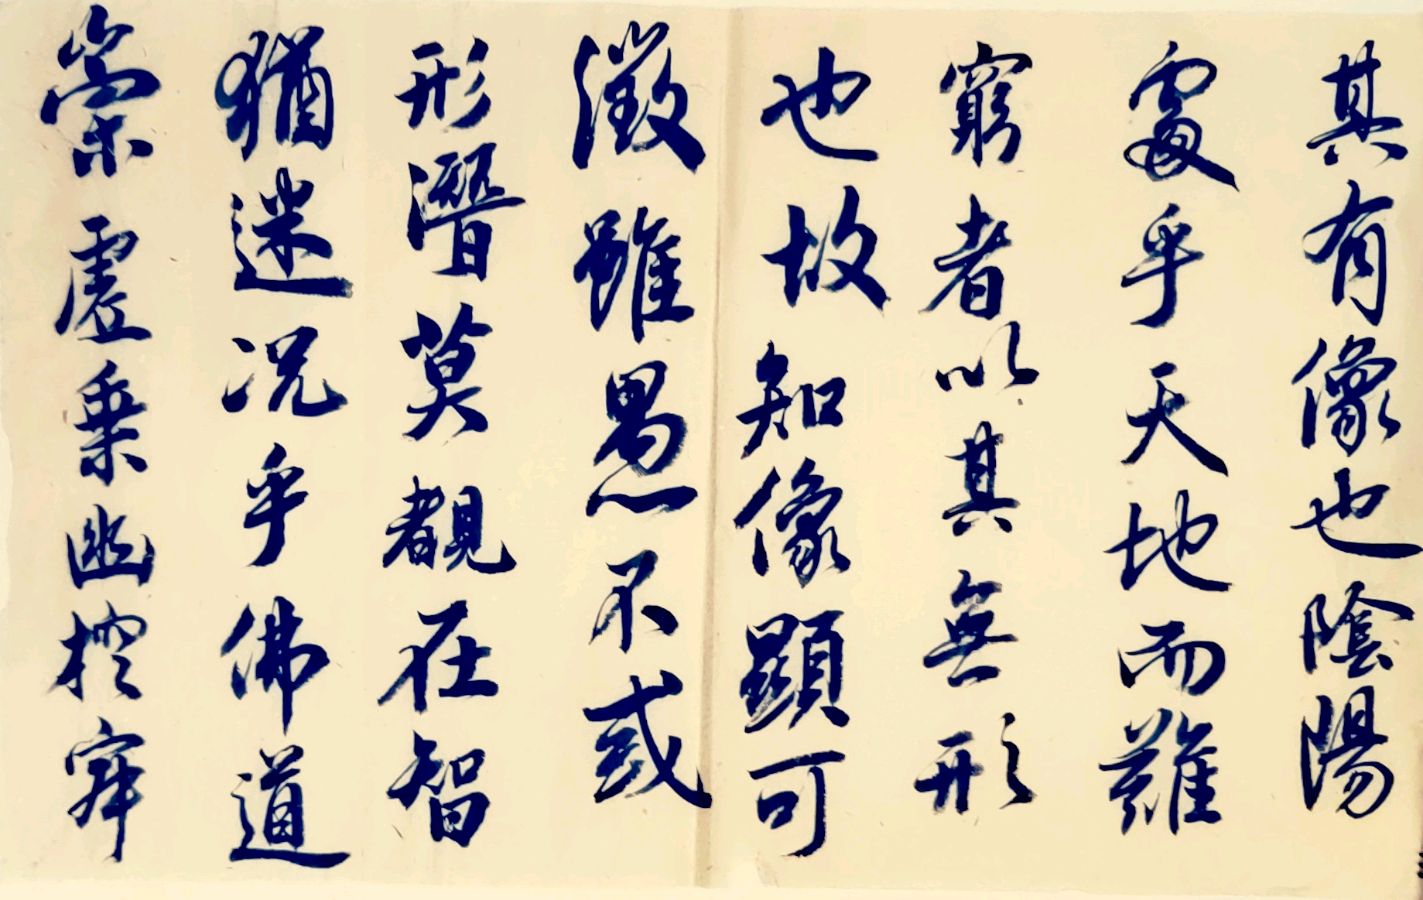 其有像也陰陽
處乎天地而難
窮者以其無形
也故知像顯可
徵雖愚不惑
形潛莫覩在智
猶迷况乎佛道
崇虛乗幽控寂